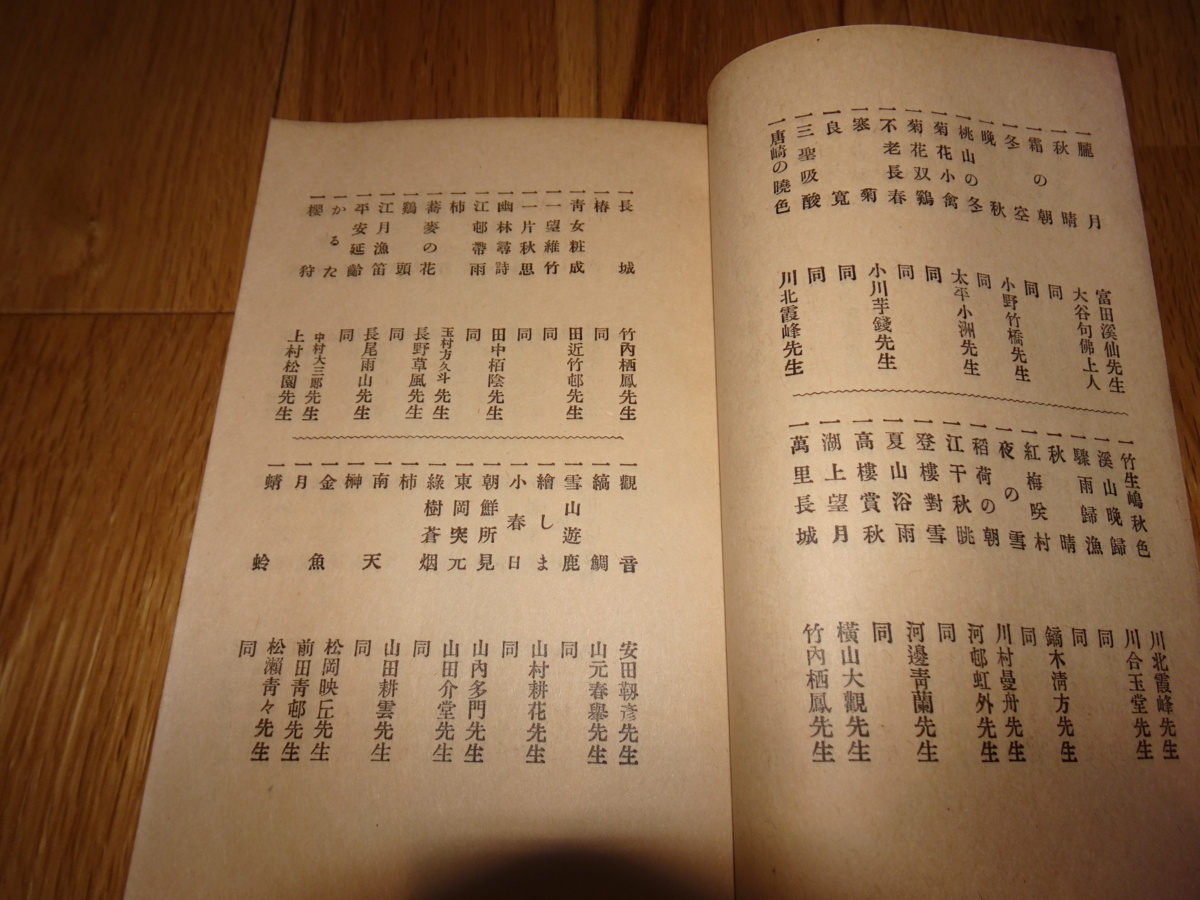 一朧月 富田溪仙先生
一秋晴 大谷句佛上人
一霜の朝 同
一冬空 同
一晩秋 小野竹橋先生
一桃山の冬 同
一菊花小禽 太平小洲先生
一菊花双鷄 同
一不老長春 同
一寒菊 小川芋錢先生
一良寛 同
一三聖吸酸 同
一唐崎の曉色 川北霞峰先生
一竹生嶋秋色 川北霞峰先生
一溪山晩歸 川合玉堂先生
一驟雨歸漁 同
一秋晴 同
一紅梅咲村 鏑木淸方先生
一夜の雪 同
一稻荷の朝 川村曼舟先生
一江干秋眺 河邨虹外先生
一登樓對雪 同
一夏山浴雨 河邊靑蘭先生
一高樓賞秋 同
一湖上望月 橫山大觀先生
一萬里長城 竹內栖鳳先生
一長城 竹內栖鳳先生
一椿 同
一靑女粧成 田近竹邨先生
一一望維竹 同
一一片秋思 同
一幽林尋詩 田中栢陰先生
一江邨帶雨 同
一柿 玉村方久斗先生
一蕎麥の花 長野草風先生
一鷄頭 同
一江月漁笛 長尾雨山先生
一平安延齡 同
一かるた 中村大三郎先生
一櫻狩 上村松園先生
一觀音 安田靱彥先生
一縞鯛 山元春擧先生
一雪山遊鹿 同
一繪しま 山村耕花先生
一小春日 同
一朝鮮所見 山內多門先生
一東岡突元 山田介堂先生
一綠樹蒼烟 同
一柿 山田耕雲先生
一南天 同
一榊 松岡映丘先生
一金魚 前田靑邨先生
一月 松瀨靑々先生
一蜻蛉 同